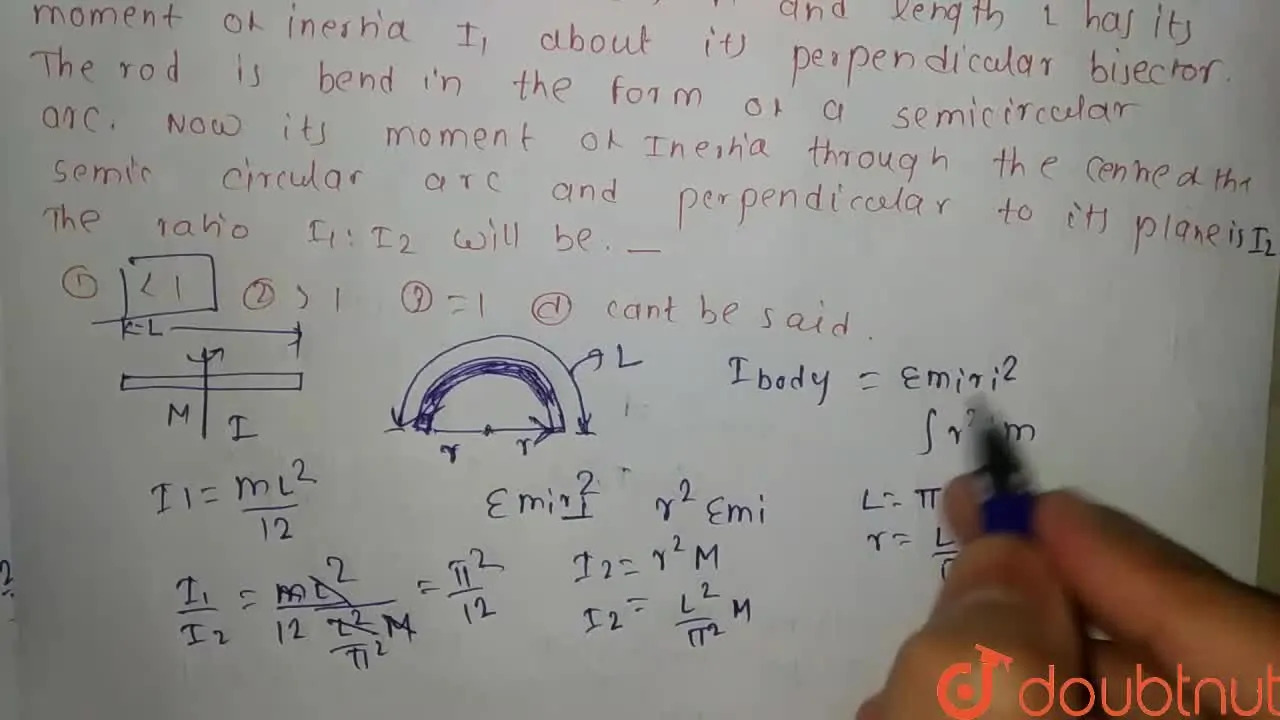 moment of inertia I1 about its perpendicular bisector.
and length L has its
The rod is bend in the form of a semicircular
arc. Now its moment of Inertia through the
semic circular arc and perpendicular to its plane is I2
The ratio I1: I2 will be. _
① < 1 ② > 1 ③ = 1 ⓓ cant be said.
L
M I
L
r r
I body = Σmiri²
∫r² m
I1 = mL²/12
Σmiri² r² Σmi
L = π
r = L
I1/I2 = mL²/12 L²/π² M = π²/12
I2 = r² M
I2 = L²/π² M
?
doubtnut